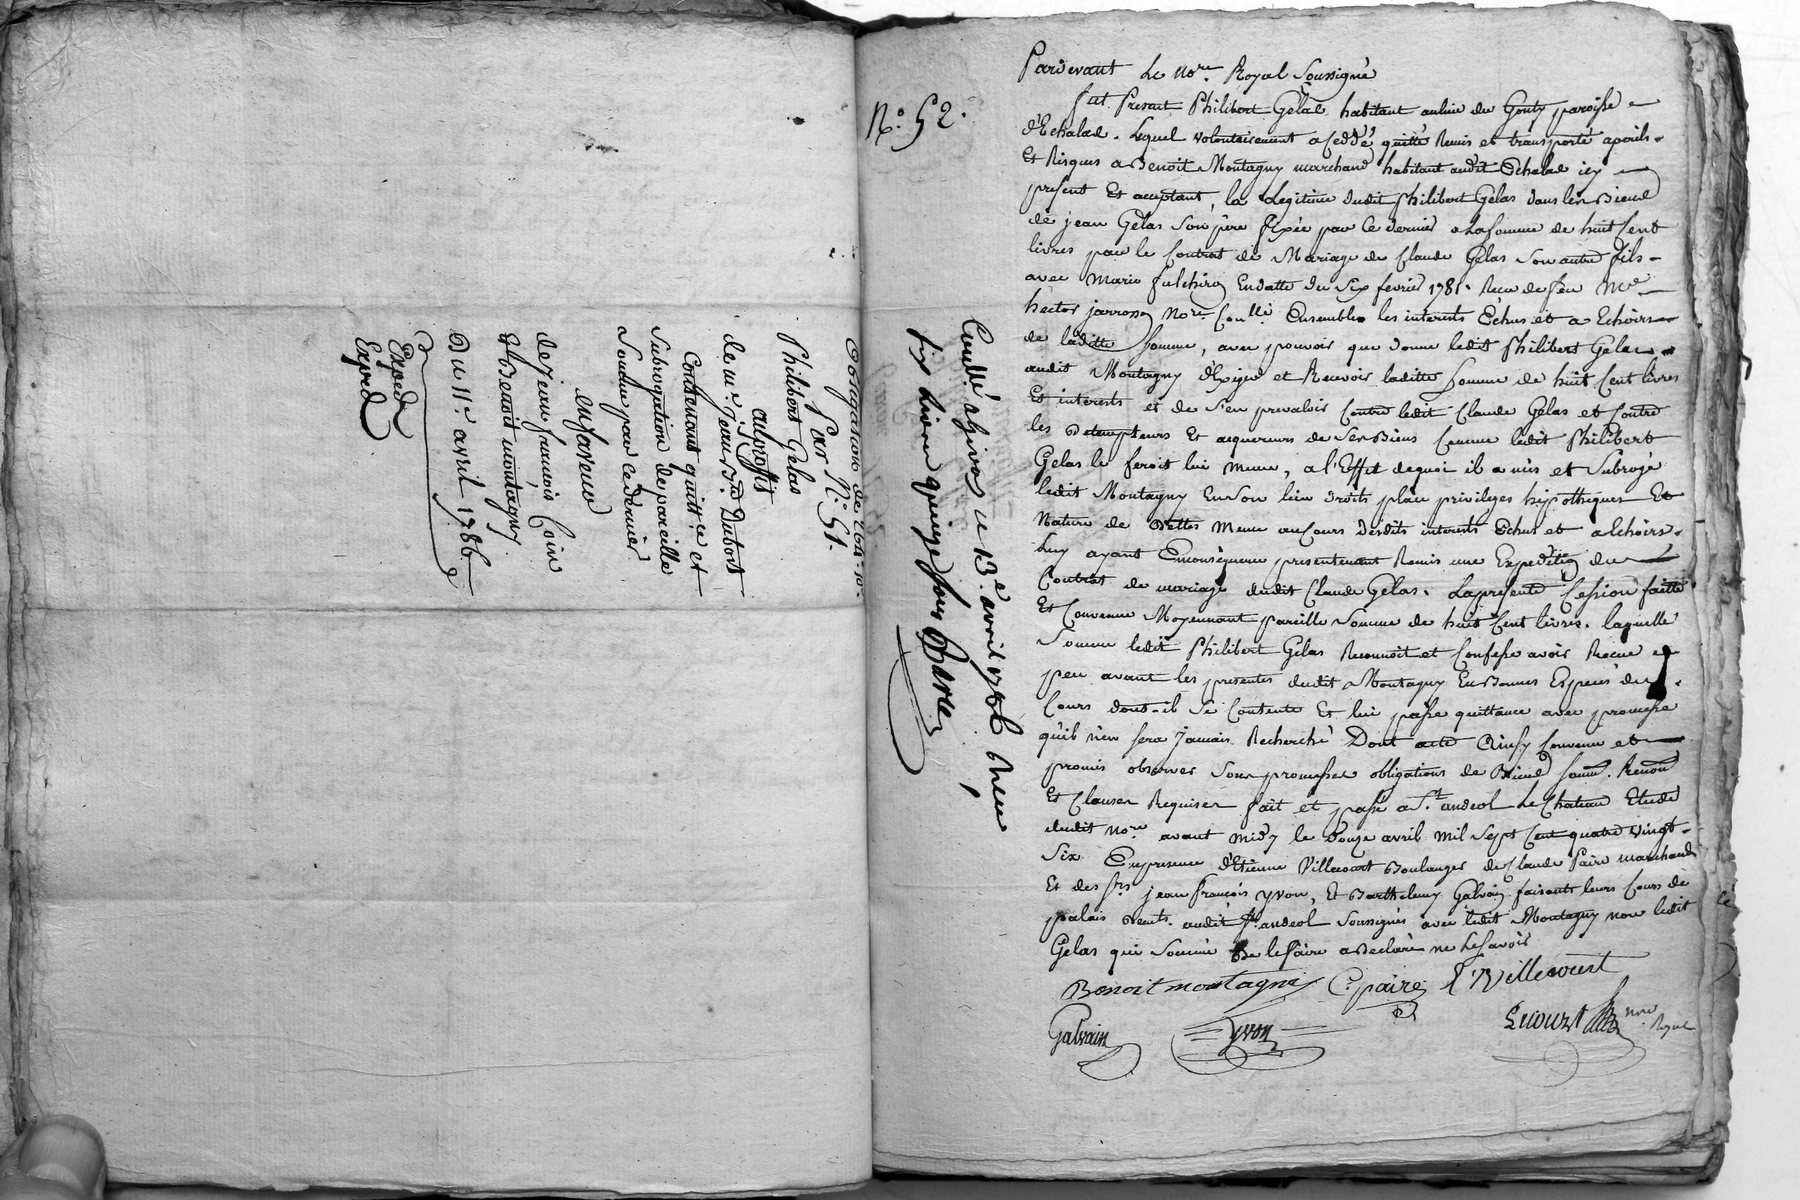 Obligation de 764# 10s
Par N.° 51.
Philibert Gelas
au proffit
de me. Jean Bte. Dubost
Contenant quittce. et
Subrogation de pareille
Somme par ce dernier
en faveur
de Jean françois Coin
et Benoit montagny
Du 11e. avril 1786
Exped
Exped
N.° 52.
Controllé à Givors ce 13e. avril 1786 Reçu
six livres quinze sous Barre
Pardevant Le nore. Royal Soussigné
fut Present Philibert Gelas habitant au lieu du Gouty paroisse
d'Echalas. Lequel volontairement a Ceddé, quitté Remis et transporté a perils
Et Risques a Benoit Montagny marchand habitant audit Echalas icy
present Et acceptant, la Legitime dudit Philibert Gelas dans les Biens
de jean Gelas Son père fixée par Ce dernier a La Somme de huit Cent
livres par le Contrat de Mariage de Claude Gelas Son autre fils
avec Marie fulchiron En datte du Six fevrier 1781. Recu de feu Me.
hector jarrosson Nore. Ensemble les interests Echus et a Echoirs
de laditte Somme, avec pouvoir que donne ledit Philibert Gelas
audit Montagny d'Exiger et Recevoir laditte Somme de huit Cent livres
Et interests et de S'en prevaloir Contre ledit Claude Gelas et Contre
les Detempteurs Et acquereurs de Ses Biens Comme ledit Philibert
Gelas le feroit lui meme, a l'Effet dequoi il a mis et Subrogé
ledit Montagny En Son lieu droits place privileges hypotheques Et
Nature de Dettes Meme au Cours desdits interests Echus et a Echoirs.
Luy ayant En Consequence presentement Remis une Expedition du
Contrat de mariage dudit Claude Gelas. La presente Cession faitte
Et Convenue Moyennant pareille Somme de huit Cent livres. laquelle
Somme ledit Philibert Gelas Reconnoit et Confesse avoir Recue
peu avant les presentes dudit Montagny En Bonnes Especes du
Cours dont il Se Contente Et lui passe quittance avec promesse
qu'il n'en Sera Jamais Recherché Dont acte Ainsy Convenu et
promis observer Sous promesses obligations de Biens Soum. Renon.
Et Clauses Requises fait et passé a St. andeol Le Chateau Etude
dudit nore avant midy le Douze avril mil Sept Cent quatre vingt
Six En presence d'Etienne Villecourt Boulanger de Claude Paire marchand
Et des Srs. jean François yvon, Et Barthelemy Galvain faisants leurs Cours de
palais audit St. andeol Soussignés avec ledit Montagny non ledit
Gelas qui Sommé De le faire a Declaré ne Le Savoir
Benoit montagni C. paire E Villecourt
Galvain yvon Lecourt nore. Royal